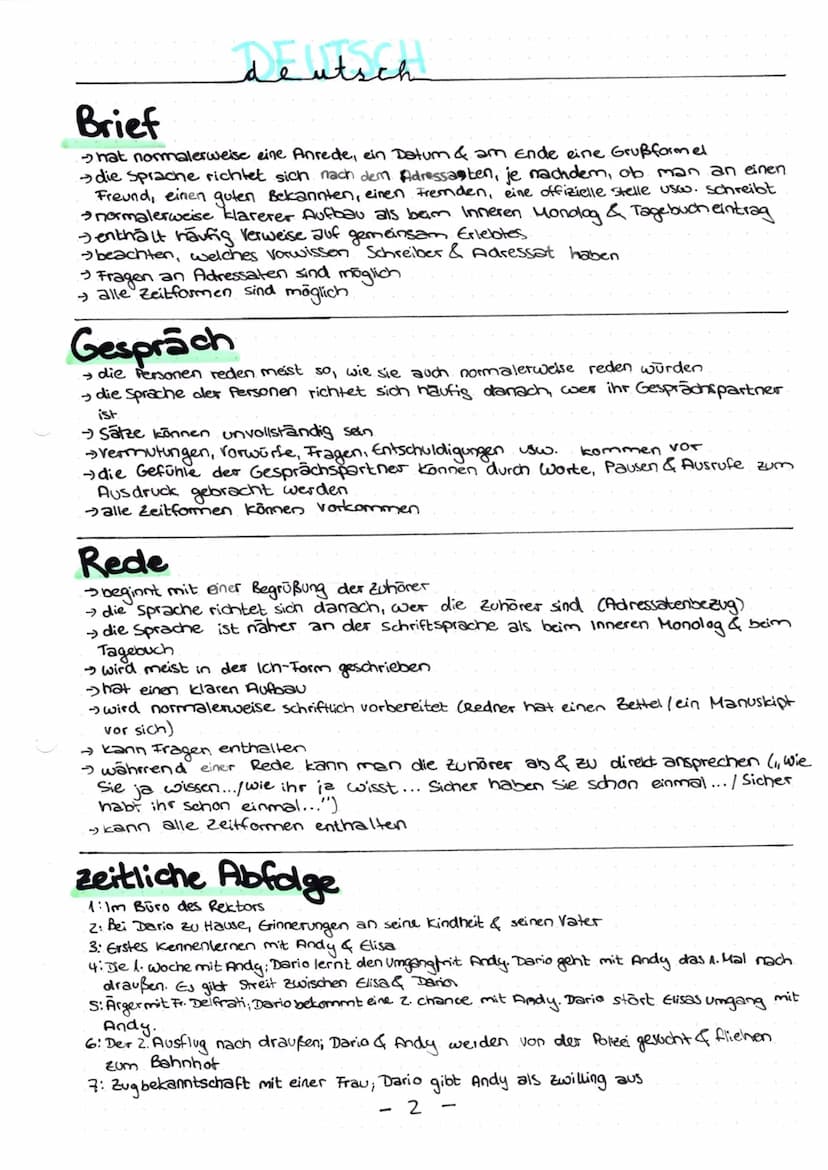 DEUTSCH
deutsch
Brief
→ hat normalerweise eine Anrede, ein Datum & am Ende eine Grußformel
→ die Sprache richtet sich nach dem Adressaten, je nachdem, ob man an einen
Freund, einen guten Bekannten, einen Fremden, eine offizielle Stelle usw. schreibt
→ normalerweise klarerer Aufbau als beim Inneren Monolog & Tagebucheintrag
→ enthält häufig Verweise auf gemeinsam Erlebtes
→ beachten, welches Vorwissen Schreiber & Adressat haben
→ Fragen an Adressaten sind möglich
→ alle Zeitformen sind möglich
Gespräch
→ die Personen reden meist so, wie sie auch normalerweise reden würden
→ die Sprache der Personen richtet sich häufig danach, wer ihr Gesprächspartner
ist
→ Sätze können unvollständig sein
→ Vermutungen, Vorwürfe, Fragen, Entschuldigungen usw. kommen vor
→ die Gefühle der Gesprächspartner können durch Worte, Pausen & Ausrufe zum
Ausdruck gebracht werden
→ alle Zeitformen können vorkommen
Rede
→ beginnt mit einer Begrüßung der Zuhörer
→ die Sprache richtet sich danach, wer die Zuhörer sind (Adressatenbezug)
→ die Sprache ist näher an der Schriftsprache als beim Inneren Monolog & beim
Tagebuch
→ wird meist in der Ich-Form geschrieben
→ hat einen klaren Aufbau
→ wird normalerweise schriftlich vorbereitet (Redner hat einen Zettel/ein Manuskipt
vor sich)
→ kann Fragen enthalten
→ währrend einer Rede kann man die Zuhörer ab & zu direkt ansprechen („Wie
Sie ja wissen.../Wie ihr ja wisst... Sicher haben Sie schon einmal.../Sicher
habt ihr schon einmal...")
→ kann alle Zeitformen enthalten
zeitliche Abfolge
1: Im Büro des Rektors
2: Bei Dario zu Hause, Erinnerungen an seine Kindheit & seinen Vater
3: Erstes Kennenlernen mit Andy & Elisa
4: Die 1. Woche mit Andy; Dario lernt den Umgang mit Andy. Dario geht mit Andy das 1. Mal nach
draußen. Es gibt Streit zwischen Elisa & Dario.
5: Ärger mit Fr. Delfrati; Dario bekommt eine 2. chance mit Andy. Dario stört Elisas Umgang mit
Andy.
6: Der 2. Ausflug nach draußen; Dario & Andy werden von der Polizei gesucht & fliehen
zum Bahnhof
7: Zugbekanntschaft mit einer Frau; Dario gibt Andy als Zwilling aus
- 2 -